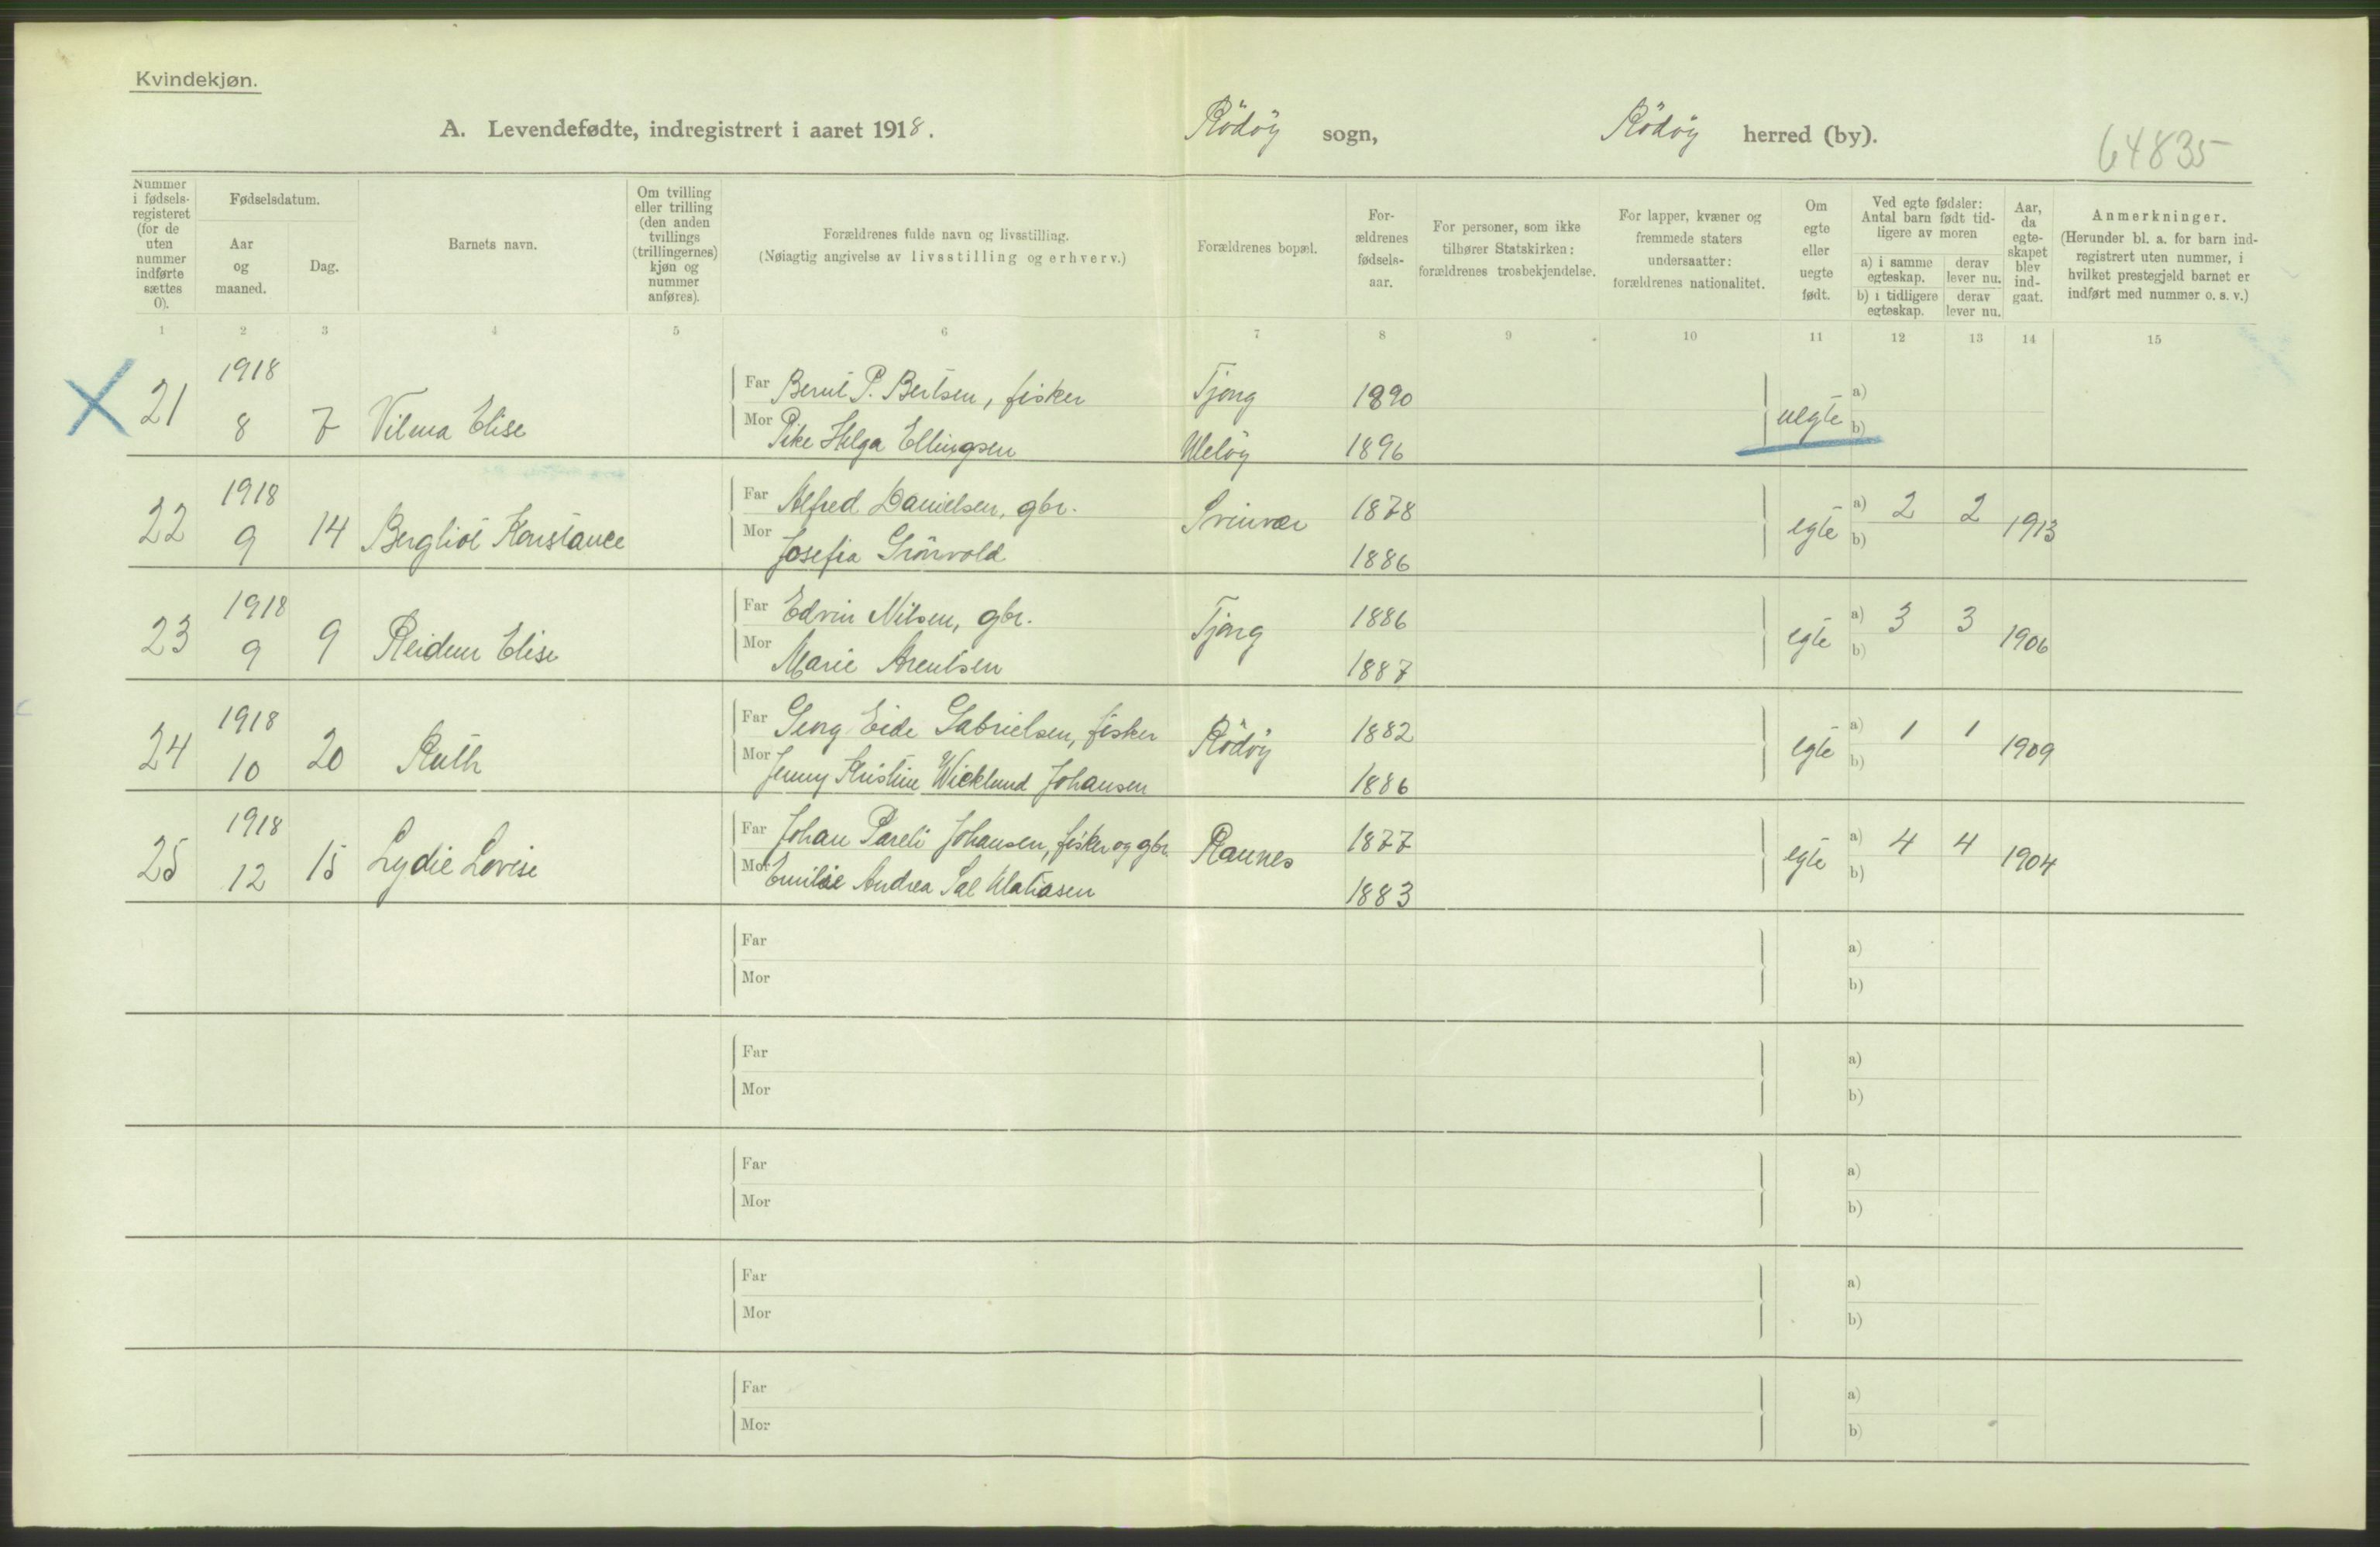 Kvindekjøn.
A. Levendefødte, indregistrert i aaret 1918. Rödöy sogn, Rödöy herred (by).
64835
Nummer i fødsels-registeret (for de uten nummer indførte sættes 0).
Fødselsdatum.
Aar og maaned.
Dag.
Barnets navn.
Om tvilling eller trilling (den anden tvillings (trillingernes) kjøn og nummer anføres).
Forældrenes fulde navn og livsstilling.
(Nøiagtig angivelse av livsstilling og erhverv.)
Forældrenes bopæl.
For-ældrenes fødsels-aar.
For personer, som ikke tilhører Statskirken: forældrenes trosbekjendelse.
For lapper, kvæner og fremmede staters undersaatter: forældrenes nationalitet.
Om egte eller uegte født.
Ved egte fødsler: Antal barn født tid-ligere av moren
a) i samme egteskap.
derav lever nu.
b) i tidligere egteskap.
derav lever nu.
Aar, da egte-skapet blev ind-gaat.
Anmerkninger.
(Herunder bl. a. for barn ind-registrert uten nummer, i hvilket prestegjeld barnet er indført med nummer o. s. v.)
1 2 3 4 5 6 7 8 9 10 11 12 13 14 15
1918 Far Bernt P. Bertsen, fisker Tjong 1890 a)
21 8 7 Vilma Elise Mor Pike Helga Ellingsen Meløy 1896 uegte b)
1918 Far Alfred Danielsen, gbr. Svinvær 1878 a) 2 2
22 9 14 Bergliot Konstance Mor Josefia Grönvold 1886 egte b) 1913
1918 Far Edvin Nilsen, gbr. Tjong 1886 a) 3 3
23 9 9 Reidun Elise Mor Marie Arentsen 1887 egte b) 1906
1918 Far Georg Eide Gabrielsen, fisker Rödöy 1882 a) 1 1
24 10 20 Ruth Mor Jenny Kristine Wicklund Johansen 1886 egte b) 1909
1918 Far Johan Pareli Johansen, fisker og gbr. Raunes 1877 a) 4 4
25 12 15 Lydie Lovise Mor Emilie Andrea Sal Matiasen 1883 egte b) 1904
Far a)
Mor b)
Far a)
Mor b)
Far a)
Mor b)
Far a)
Mor b)
Far a)
Mor b)